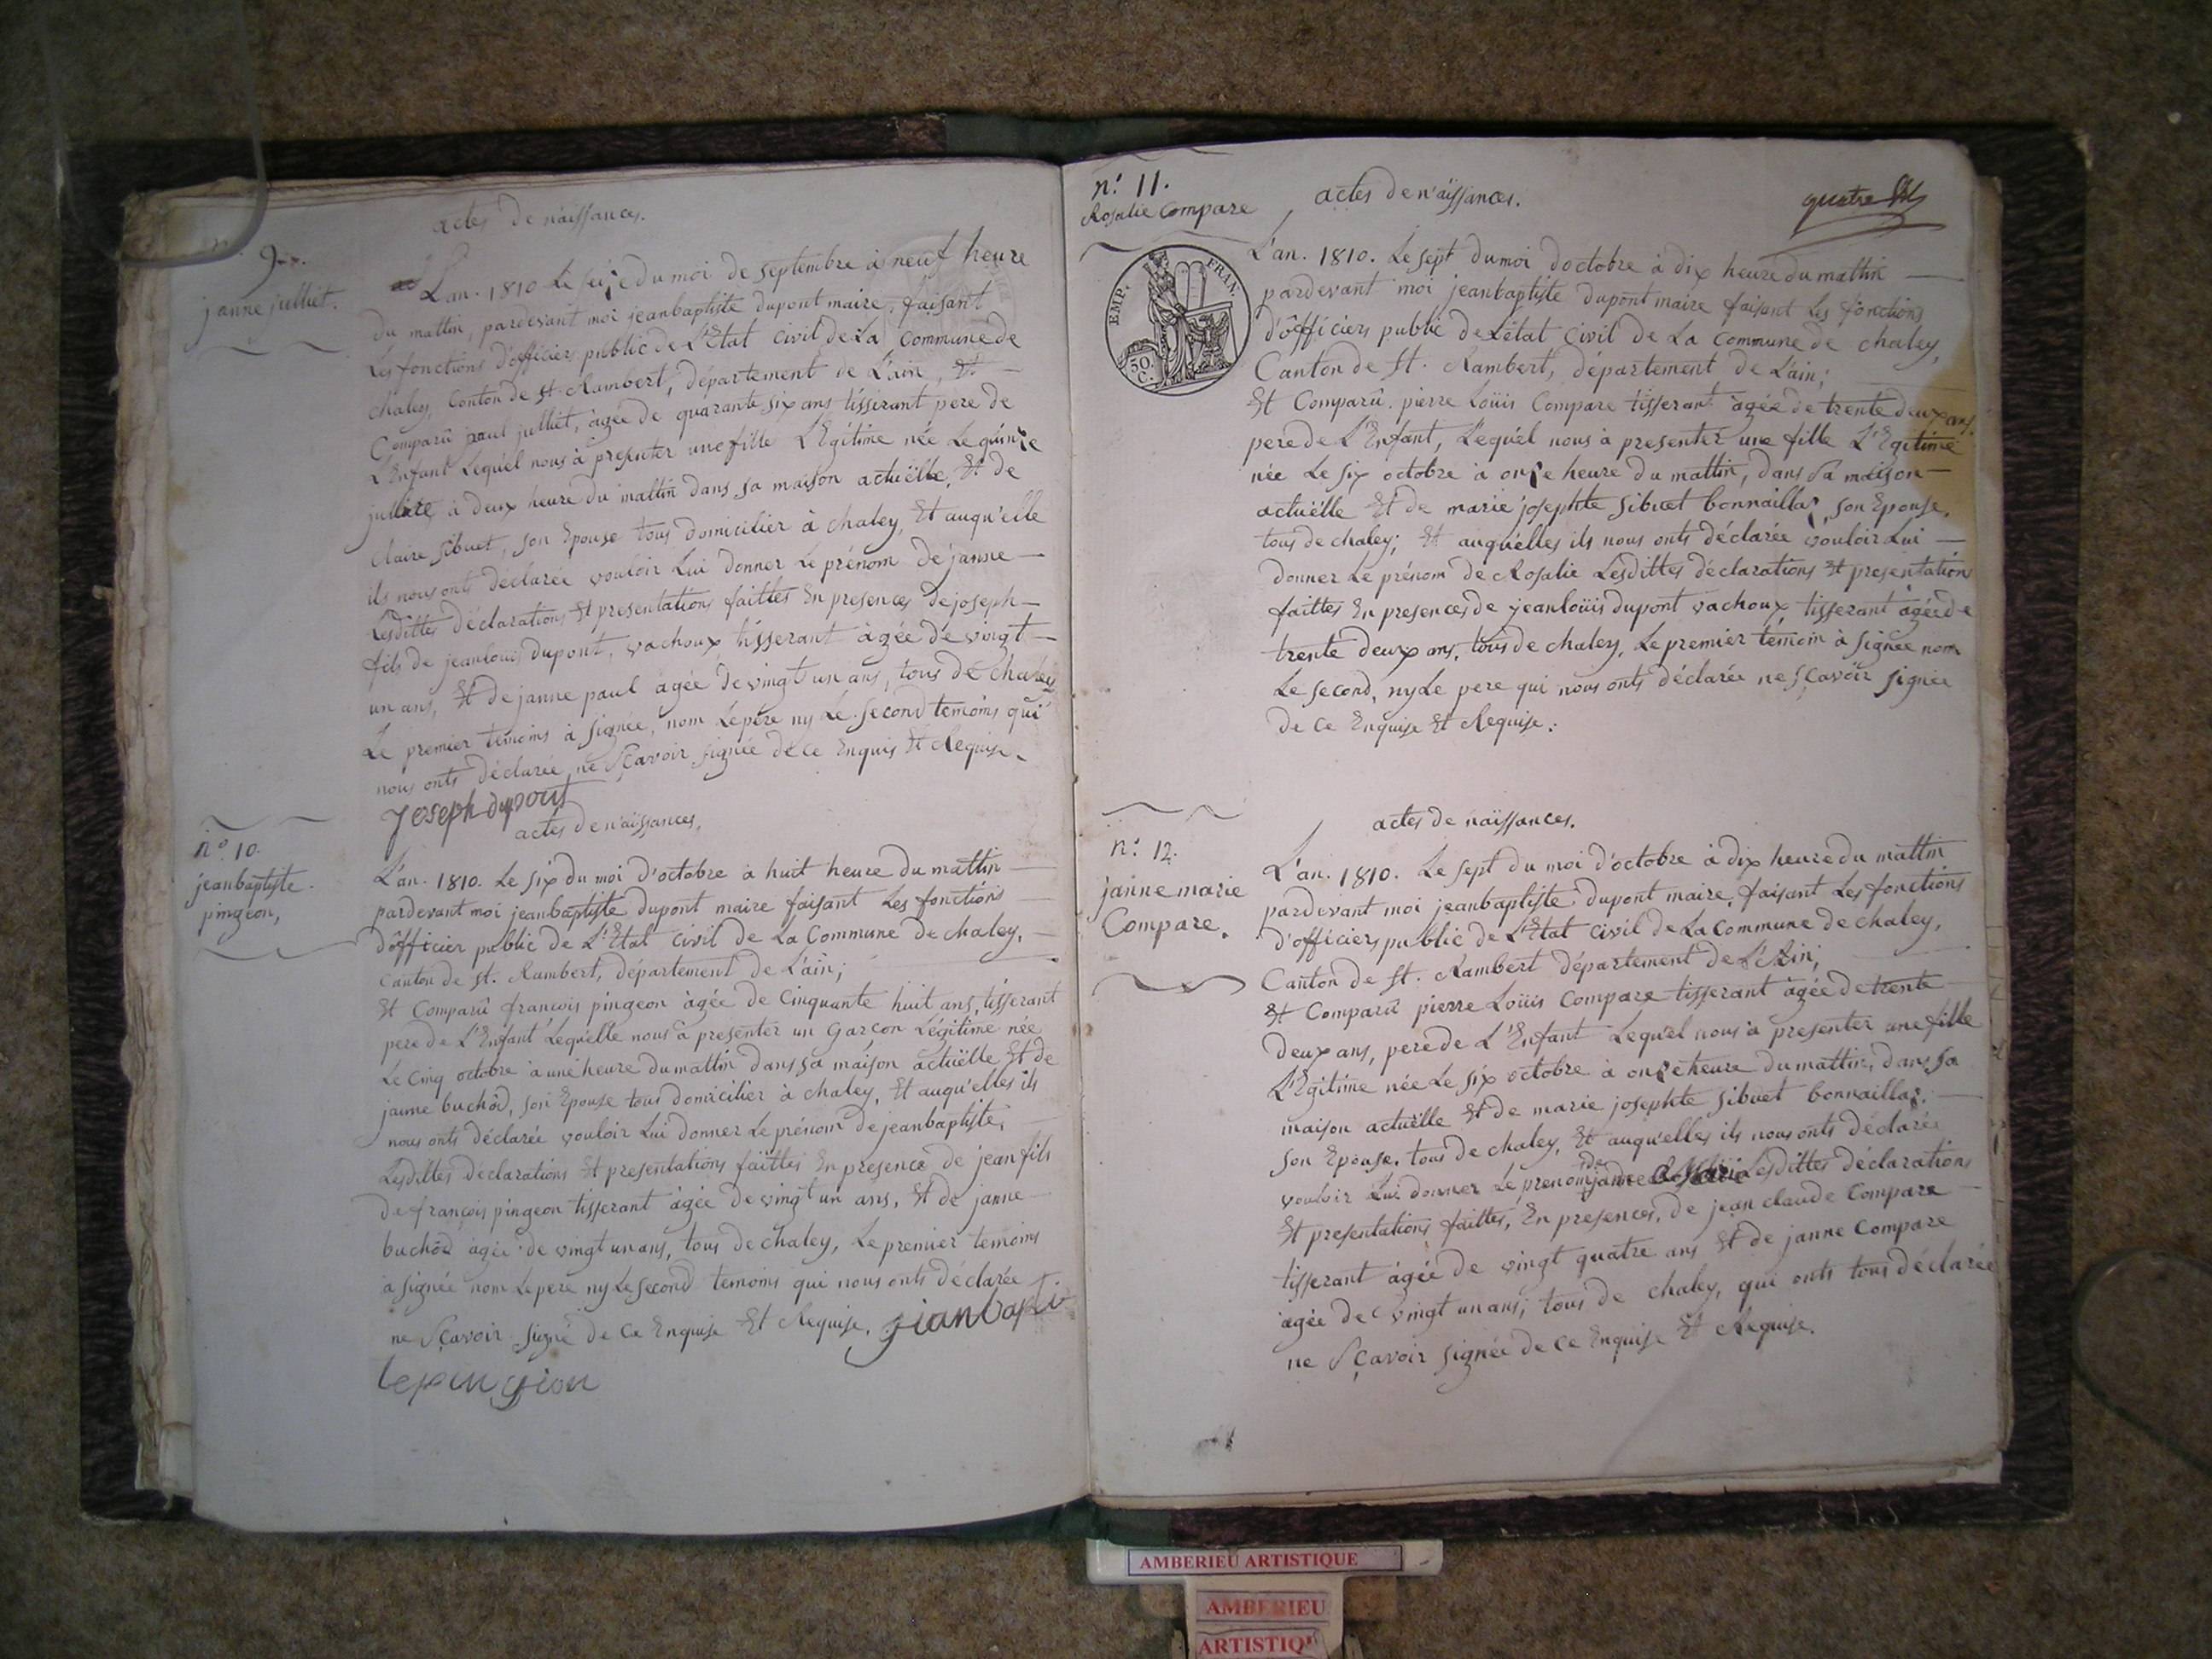 actes de naissances.
9.
janne julliet.
L'an. 1810 Le seize du moi de septembre à neuf heure
du mattin, pardevant moi jeanbaptiste dupont maire, faisant
Les fonctions d'officiers public de L'Etat civil de La Commune de
chaley, Conton de st. Rambert, département de L'ain, Et
Comparû paul julliet, àgée de quarante six ans tisserant pere de
L'Enfant Lequél nous à presenter une fille L'Egitime née Le quinze
à deux heure du mattin dans sa maison actuëlle, Et de
Claire sibuet, son Epouse tous domicilier à chaley, Et auqu'elle
ils nous onts déclarée vouloir Lui donner Le prénom de janne
Lesdittes déclarations Et presentations faittes En presences de joseph
fils de jeanlouis dupont, vachoux tisserant àgée de vingt
un ans, Et de janne paul àgée de vingt un ans, tous de chaley
Le premier temoins à signée, nom Le pere ny Le second temoins qui
nous onts déclarée ne sçavoir signée de ce Enquis Et Requise.
Joseph dupont
actes de naissances,
n° 10.
jeanbaptiste.
pingeon,
L'an. 1810. Le six du moi d'octobre à huit heure du mattin
pardevant moi jeanbaptiste dupont maire faisant Les fonctions
d'officier public de L'Etat civil de La Commune de chaley,
Canton de st. Rambert, département de L'ain;
Et Comparû françois pingeon àgée de Cinquante huit ans, tisserant
pere de L'Enfant Lequélle nous à presenter un Garçon Légitime née
Le Cinq octobre à une heure du mattin dans sa maison actuëlle Et de
janne buchôd, son Epouse tous domicilier à chaley, Et auqu'elles ils
nous onts déclarée vouloir Lui donner Le prénom de jeanbaptiste,
Lesdittes déclarations Et presentations faittes En presence de jean fils
de françois pingeon tisserant àgée de vingt un ans, Et de janne
buchôd àgée de vingt un ans, tous de chaley, Le premier temoins
à signée nom Le pere ny Le second temoins qui nous onts déclarée
ne sçavoir signé de Ce Enquise Et Requise. jianbapti
lepingion
n°. 11.
Rosalie Compare
actes de naissances.
quatre
EMP. FRAN.
50. C.
L'an. 1810. Le sept du moi doctobre à dix heure du mattin
pardevant moi jeanbaptiste dupont maire faisant Les fonctions
d'officiers public de L'état Civil de La Commune de chaley,
Canton de St. Rambert, département de L'ain;
Et Comparû. pierre Loüis Compare tisserant àgée de trente deux ans.
pere de L'Enfant, Lequél nous à presenter une fille L'Egitime
née Le six octobre à onze heure du mattin, dans sa maison
actuëlle Et de marie josephte sibuet bonnaillaz, son Epouse,
tous de chaley; Et auquélles ils nous onts déclarée vouloir Lui
donner Le prénom de Rosalie Lesdittes déclarations Et presentations
faittes En presences de jeanloüis dupont vachoux tisserant àgée de
trente deux ans, tous de chaley, Le premier témoin à signée nom
Le second, ny Le pere qui nous onts déclarée ne sçavoir signée
de ce Enquise Et Requise:
actes de naissances.
n°. 12.
janne marie
Compare.
L'an. 1810. Le sept du moi d'octobre à dix heure du mattin
pardevant moi jeanbaptiste dupont maire, faisant Les fonctions
d'officiers public de L'Etat civil de La Commune de chaley,
Canton de St. Rambert département de L'Ain,
Et Comparû pierre Loüis Compare tisserant àgée de trente
deux ans, pere de L'Enfant Lequ'el nous à presenter une fille
L'Egitime née Le six octobre à onze heure du mattin, dans sa
maison actuëlle Et de marie josephte sibuet bonnaillaz.
son Epouse, tous de chaley, Et auqu'elles ils nous onts déclarée
vouloir Lui donner Le prenom de janne Marie Lesdittes déclarations
Et presentations faittes, En presences, de jean claude Compare
tisserant àgée de vingt quatre ans Et de janne Compare
àgée de vingt un ans; tous de chaley, qui onts tous déclarée
ne sçavoir signée de ce Enquise Et Requise.
AMBERIEU ARTISTIQUE
AMBERIEU
ARTISTIQU